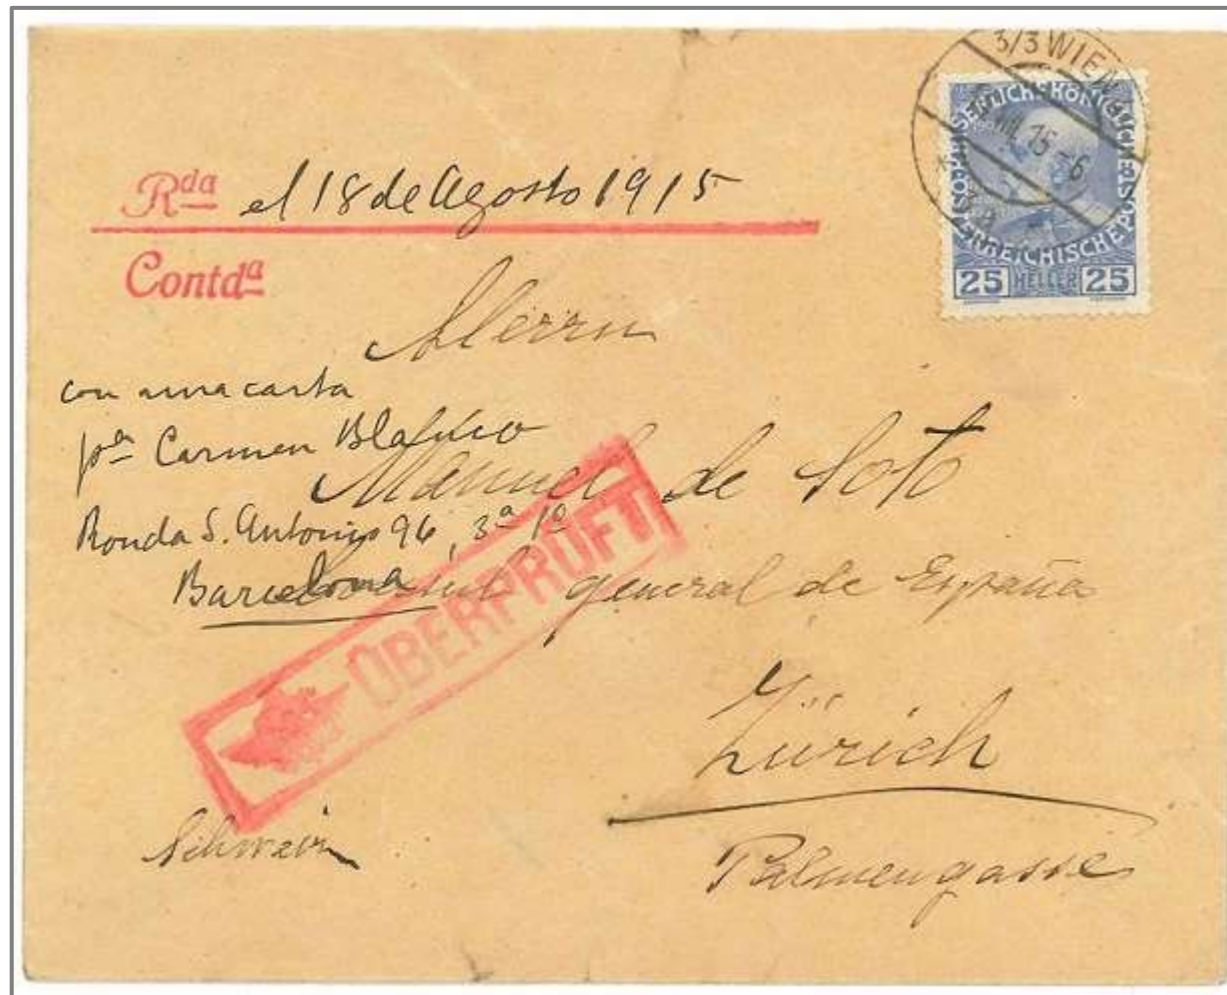 3/3 WIEN
VIII. 15 - 6
KAISERLICHE KÖNIGLICHE ÖSTERREICHISCHE POST
25 HELLER 25
Rda el 18 de Agosto 1915
Contda
Herrn
con una carta
pa Carmen
Manuel de Soto
Ronda S. Antonio 96, 3ª 1ª
Barcelona
general de España
ÜBERPRÜFT
Zürich
Schweiz
Palmengasse